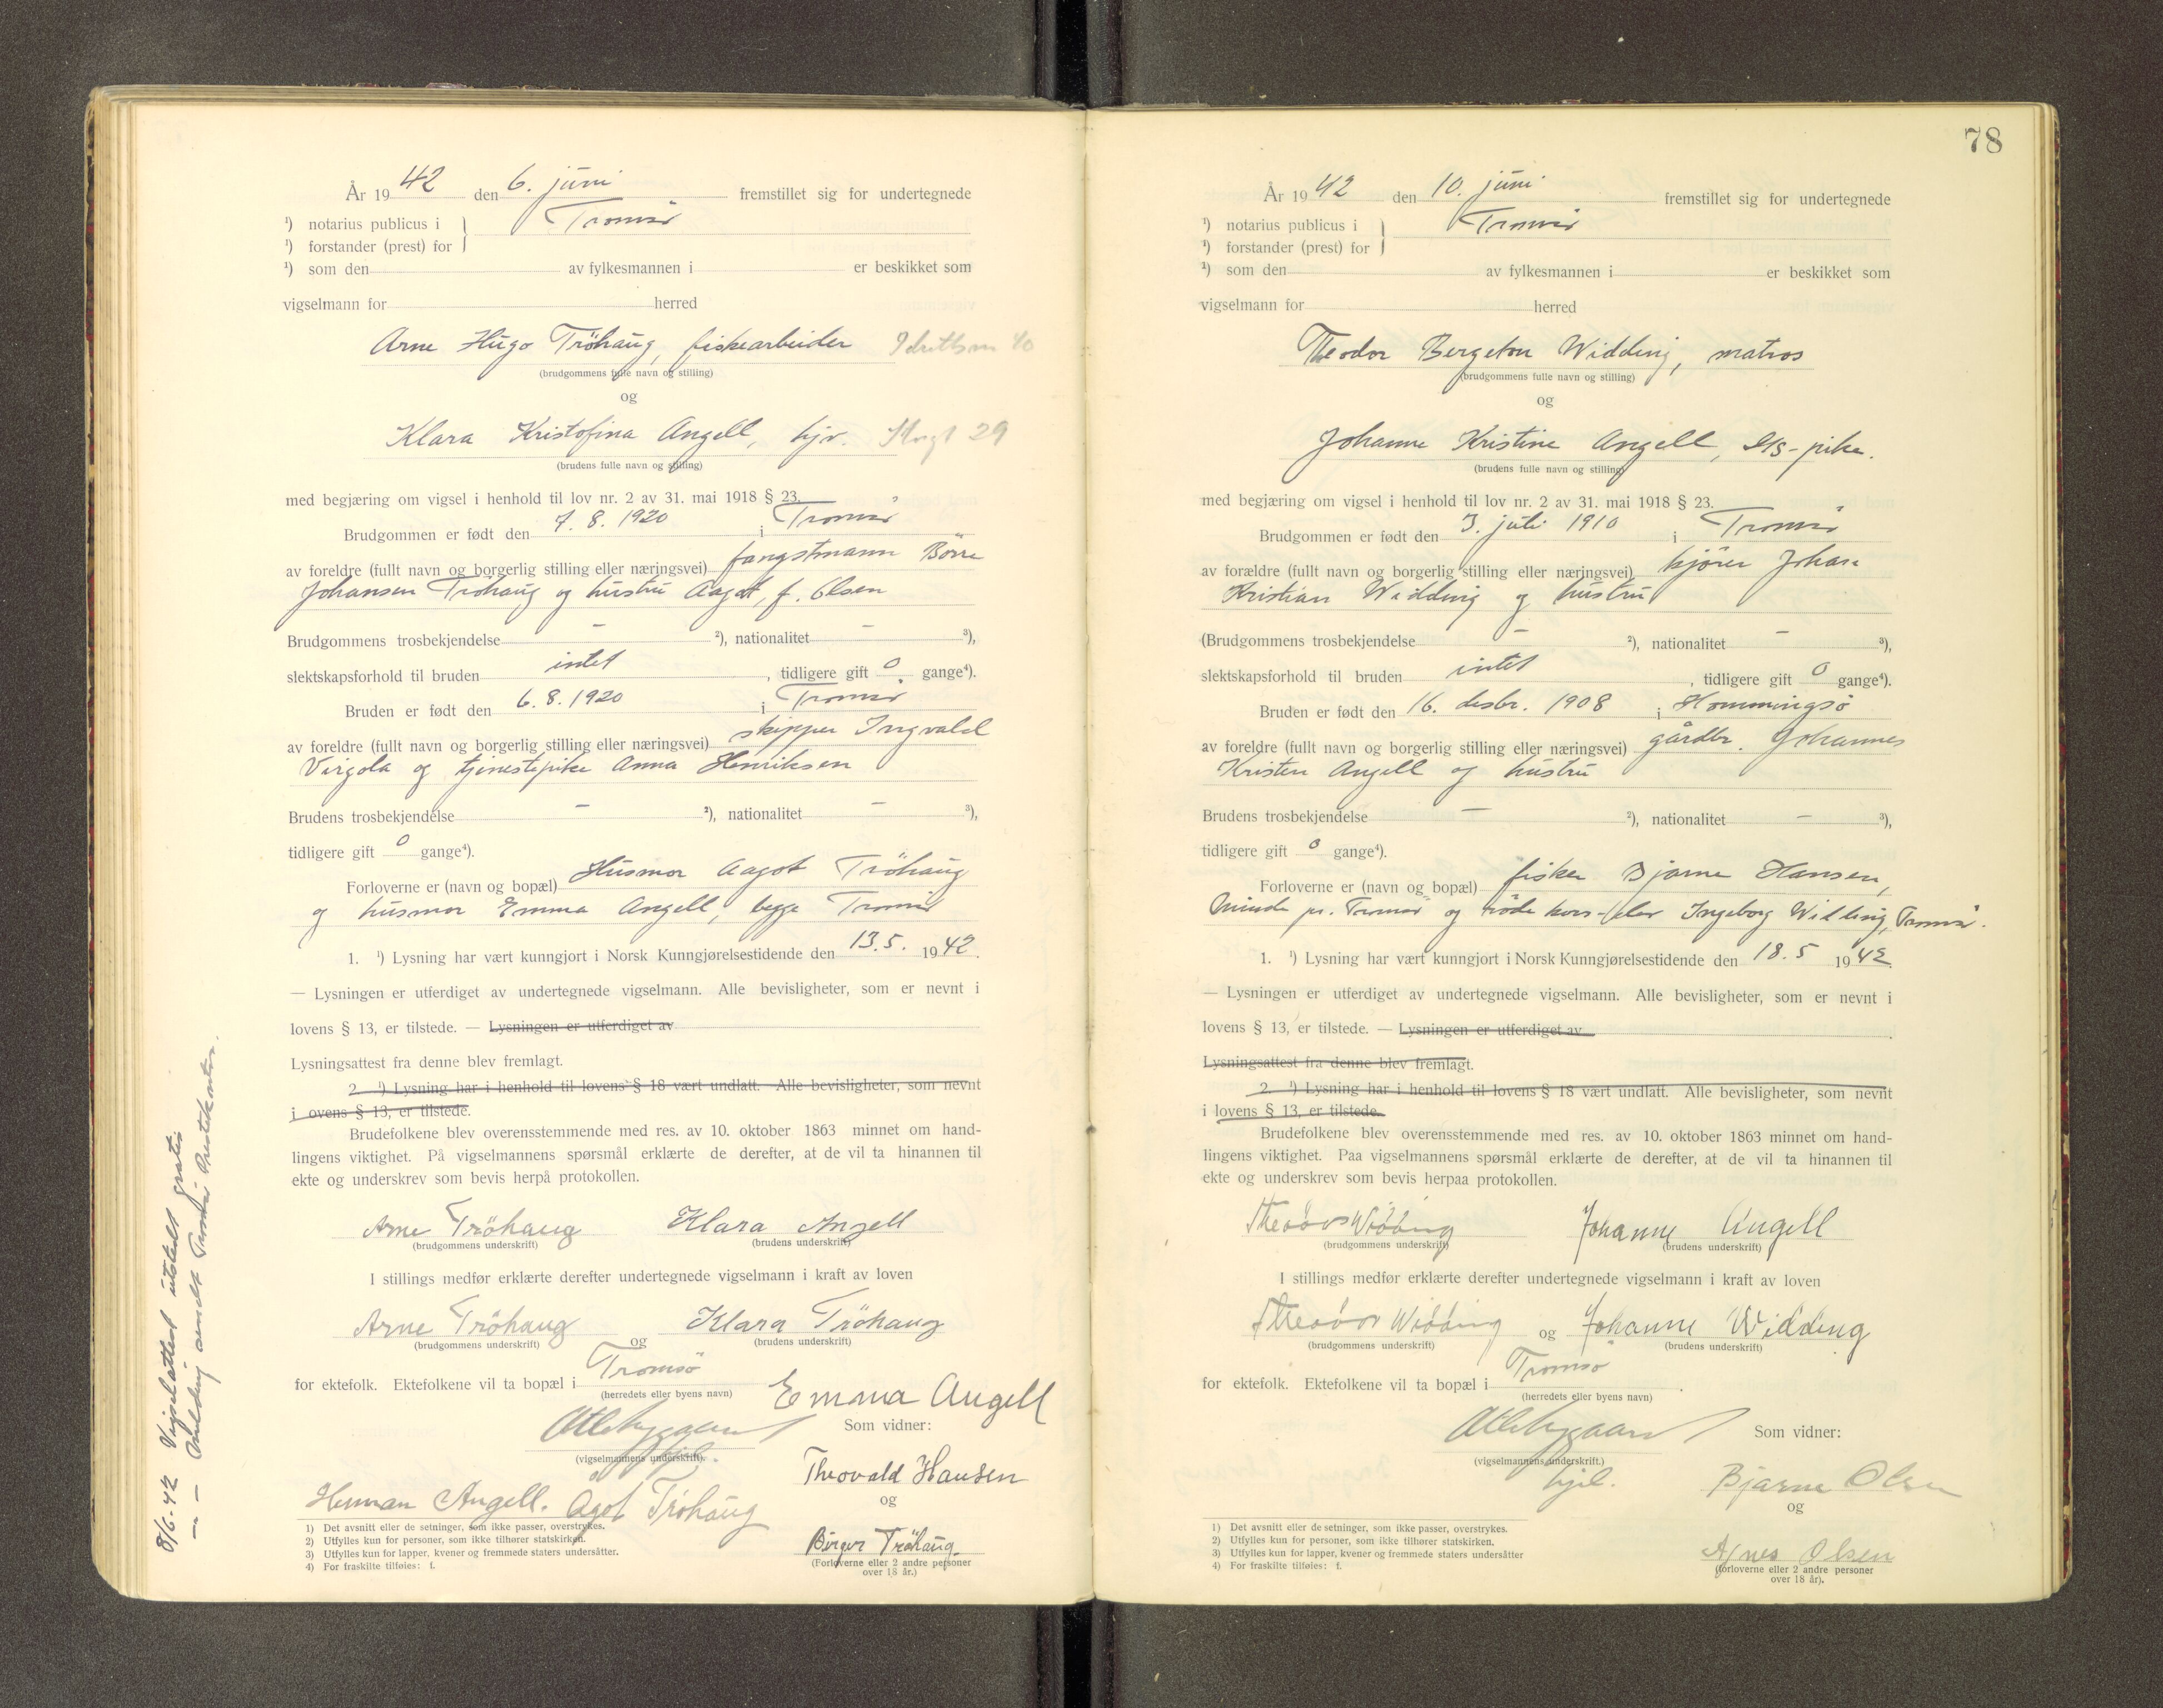 År 1942 den 6. juni fremstillet sig for undertegnede
¹) notarius publicus i } Tromsö
¹) forstander (prest) for
¹) som den av fylkesmannen i er beskikket som
vigselmann for herred
Arne Hugo Tröhaug, fiskearbeider
(brudgommens fulle navn og stilling)
og
Klara Kristofina Angell, hjv. 29
(brudens fulle navn og stilling)
med begjæring om vigsel i henhold til lov nr. 2 av 31. mai 1918 § 23.
Brudgommen er født den 7. 8. 1920 i Tromsö
av foreldre (fullt navn og borgerlig stilling eller næringsvei) fangstmann Börre
Johansen Tröhaug og hustru Aagot, f. Olsen
Brudgommens trosbekjendelse – ²), nationalitet – ³),
slektskapsforhold til bruden intet, tidligere gift 0 gange⁴).
Bruden er født den 6. 8. 1920 i Tromsö
av foreldre (fullt navn og borgerlig stilling eller næringsvei) skipper Ingvald
Virgola og tjenestepike Anna Henriksen
Brudens trosbekjendelse – ²), nationalitet – ³),
tidligere gift 0 gange⁴).
Forloverne er (navn og bopæl) Husmor Aagot Tröhaug
og husmor Emma Angell, begge Tromsö
1. ¹) Lysning har vært kunngjort i Norsk Kunngjørelsestidende den 13. 5. 1942.
— Lysningen er utferdiget av undertegnede vigselmann. Alle bevisligheter, som er nevnt i
lovens § 13, er tilstede. — Lysningen er utferdiget av
Lysningsattest fra denne blev fremlagt.
2 ¹) Lysning har i henhold til lovens § 18 vært undlatt. Alle bevisligheter, som nevnt
i ovens § 13, er tilstede.
Brudefolkene blev overensstemmende med res. av 10. oktober 1863 minnet om hand-
lingens viktighet. På vigselmannens spørsmål erklærte de derefter, at de vil ta hinannen til
ekte og underskrev som bevis herpå protokollen.
Arne Tröhaug Klara Angell
(brudgommens underskrift) (brudens underskrift)
I stillings medfør erklærte derefter undertegnede vigselmann i kraft av loven
Arne Tröhaug og Klara Tröhaug
(brudgommens underskrift) (brudens underskrift)
for ektefolk. Ektefolkene vil ta bopæl i Tromsö
(herredets eller byens navn)
Emma Angell
Som vidner:
(vigselmannens underskrift).
hjel.
Theovald Hansen
Herman Angell. Agot Tröhaug
og
Birger Tröhaug
(Forloverne eller 2 andre personer
over 18 år.)
1) Det avsnitt eller de setninger, som ikke passer, overstrykes.
2) Utfylles kun for personer, som ikke tilhører statskirken.
3) Utfylles kun for lapper, kvener og fremmede staters undersåtter.
4) For fraskilte tilføies: f.
8/6-42 Vigselattest utstedt gratis
– – Melding sendt Tromsö Prestekontor.
78
År 1942 den 10. juni fremstillet sig for undertegnede
¹) notarius publicus i } Tromsö
¹) forstander (prest) for
¹) som den av fylkesmannen i er beskikket som
vigselmann for herred
Theodor Bergeton Widding, matros
(brudgommens fulle navn og stilling)
og
Johanne Kristine Angell, hus-pike.
(brudens fulle navn og stilling)
med begjæring om vigsel i henhold til lov nr. 2 av 31. mai 1918 § 23.
Brudgommen er født den 3. juli 1910 i Tromsö
av forældre (fullt navn og borgerlig stilling eller næringsvei) kjörer Johan
Kristian Widding og hustru
(Brudgommens trosbekjendelse – ²), nationalitet – ³),
slektskapsforhold til bruden intet, tidligere gift 0 gange⁴).
Bruden er født den 16. desbr. 1908 i Hommingsö
av foreldre (fullt navn og borgerlig stilling eller næringsvei) gårdbr. Johannes
Kristen Angell og hustru
Brudens trosbekjendelse – ²), nationalitet – ³),
tidligere gift 0 gange⁴).
Forloverne er (navn og bopæl) fisker Bjarne Hansen,
Minde pr. Tromsö og röde kors-elev Ingeborg Widding, Tromsö.
1. ¹) Lysning har vært kunngjort i Norsk Kunngjørelsestidende den 18. 5 1942.
— Lysningen er utferdiget av undertegnede vigselmann. Alle bevisligheter, som er nevnt i
lovens § 13, er tilstede. — Lysningen er utferdiget av
Lysningsattest fra denne blev fremlagt.
2 ¹) Lysning har i henhold til lovens § 18 vært undlatt. Alle bevisligheter, som nevnt
i lovens § 13, er tilstede.
Brudefolkene blev overensstemmende med res. av 10. oktober 1863 minnet om hand-
lingens viktighet. Paa vigselmannens spørsmål erklærte de derefter, at de vil ta hinannen til
ekte og underskrev som bevis herpaa protokollen.
Theodor Widding Johanne Angell
(brudgommens underskrift) (brudens underskrift)
I stillings medfør erklærte derefter undertegnede vigselmann i kraft av loven
Theodor Widding og Johanne Widding
(brudgommens underskrift) (brudens underskrift)
for ektefolk. Ektefolkene vil ta bopæl i Tromsö
(herredets eller byens navn)
Som vidner:
(vigselmannens underskrift.)
hjel.
Bjarne Olsen
og
Agnes Olsen
(forloverne eller 2 andre personer
over 18 år).
1) Det avsnitt eller de setninger, som ikke passer, overstrykes.
2) Utfylles kun for personer, som ikke tilhører statskirken.
3) Utfylles kun for lapper, kvener og fremmede staters undersåtter
4) For fraskilte tilføies: f.